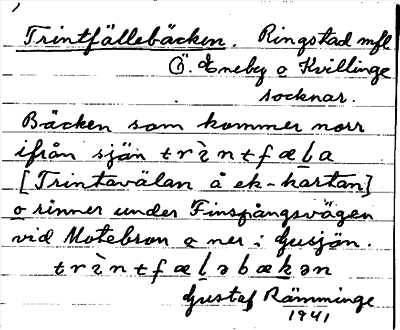 Trintfällebäcken. Ringstad mfl
Ö. Eneby o Kvillinge
socknar.
Bäcken som kommer norr
ifrån sjön trìntfæḷa
[Trintavälan å ek-kartan]
o rinner under Finspångsvägen
vid Motebron o ner i Gusjön.
trìntfæḷəbækən
Gustaf Rämminge
1941